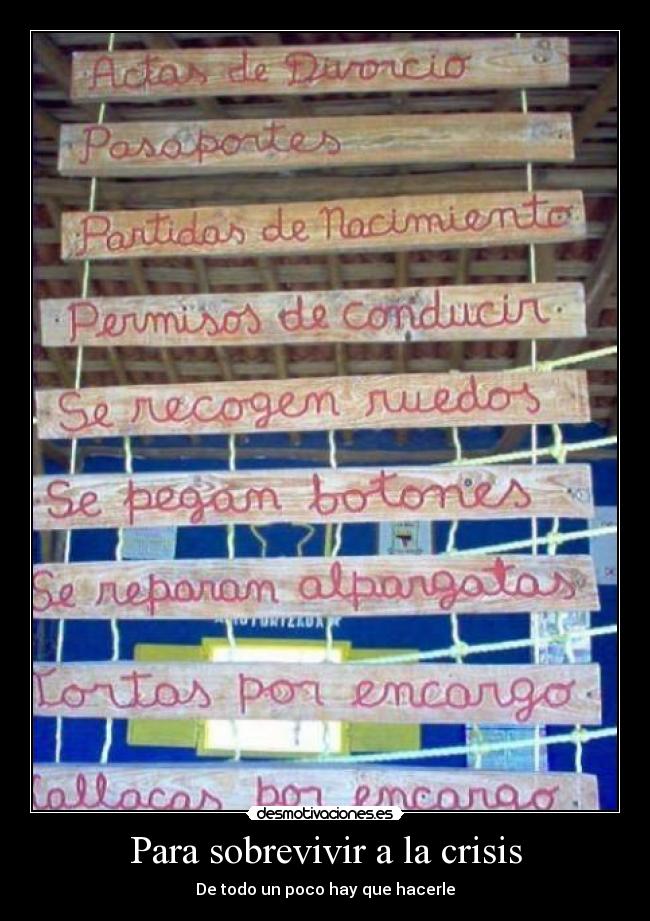 Actas de Divorcio
Pasaportes
Partidas de Nacimiento
Permisos de conducir
Se recogen ruedos
Se pegan botones
Se reparan alpargatas
Tortas por encargo
por encargo
desmotivaciones.es
Para sobrevivir a la crisis
De todo un poco hay que hacerle